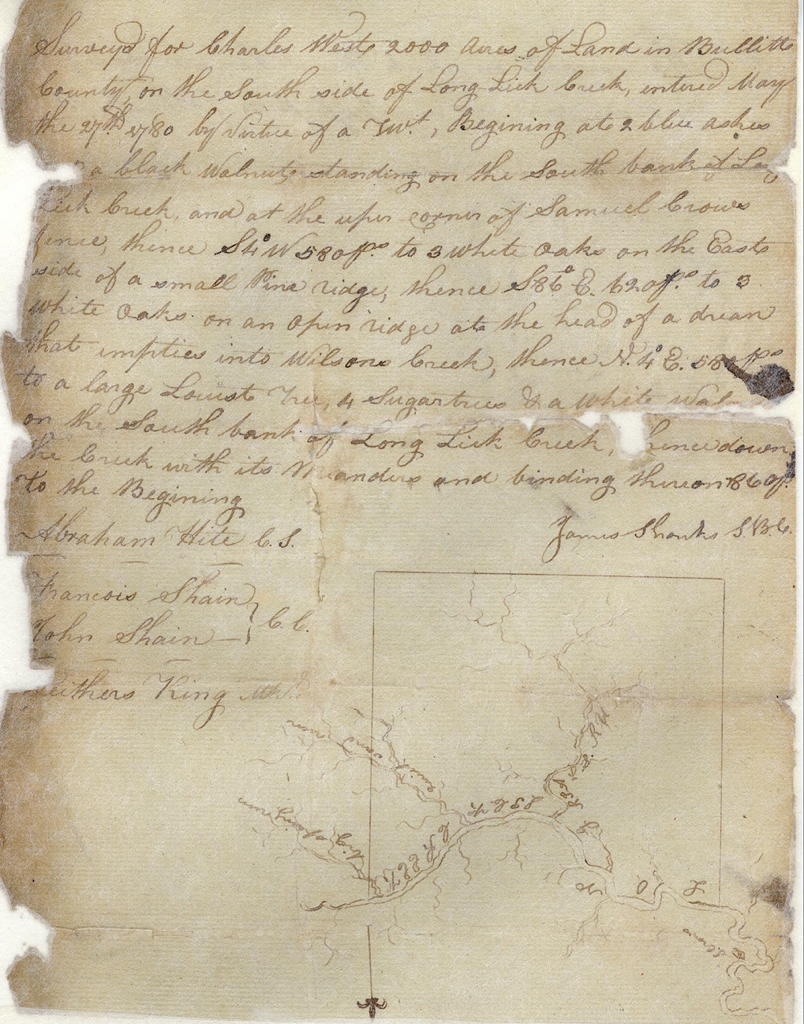 Survey'd for Charles West 2000 Acres of Land in Bullitt
County, on the South side of Long Lick Creek, entered May
the 27th 1780 by Virtue of a Twt, Begining at 2 blue ashes
a black Walnut, standing on the South bank of Long
Lick Creek, and at the uper corner of Samuel Crows
fence, thence S4° W 580 ps. to 3 white Oaks on the East
side of a small Pine ridge, thence S86° E. 620 ps. to 3
white Oaks on an open ridge at the head of a drean
that empties into Wilsons Creek, thence N. 4° E. 580 ps
to a large Locust Tree, 4 Sugartrees & a white Wal
on the South bank of Long Lick Creek, hence down
the Creek with its Meanders and binding thereon 860 ps.
to the Begining
James Shanks S.B.C.
Abraham Hite C.S.
Francois Shain
John Shain
C.C.
Withers King